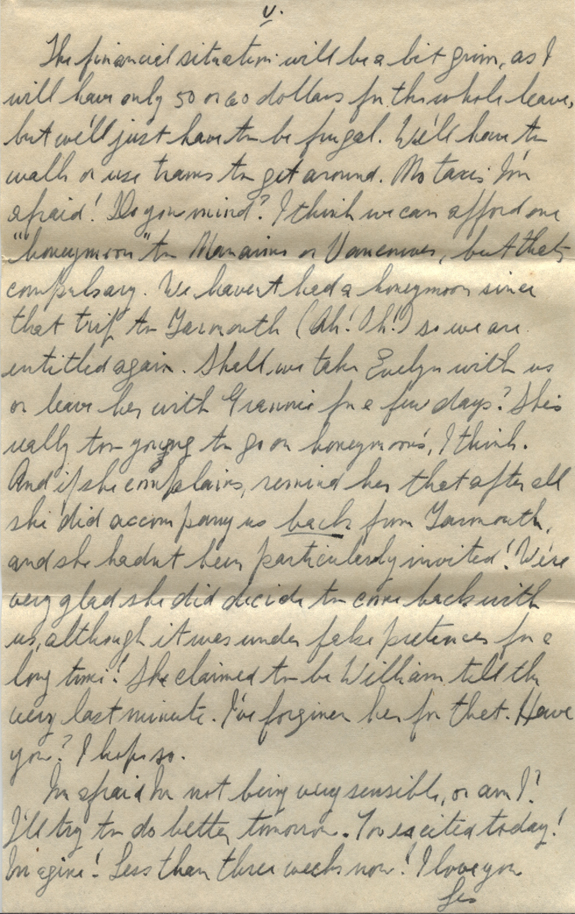 V.
The financial situation will be a bit grim, as I
will have only 50 or 60 dollars for the whole leave,
but we'll just have to be frugal. We'll have to
walk or use trams to get around. No taxis I'm
afraid! Do you mind? I think we can afford one
"honeymoon" to Nanaimo or Vancouver, but that's
compulsary. We haven't had a honeymoon since
that trip to Yarmouth (Ah! Oh!) so we are
entitled again. Shall we take Evelyn with us
or leave her with Grannie for a few days? She's
really too young to go on honeymoons, I think.
And if she complains, remind her that after all
she did accompany us back from Yarmouth,
and she hadn't been particularly invited! We're
very glad she did decide to come back with
us, although it was under fake pretences for a
long time! She claimed to be William till the
very last minute. I've forgiven her for that. Have
you? I hope so.
I'm afraid I'm not being very sensible, or am I?
I'll try to do better tomorrow. Too excited today!
Imagine! Less than three weeks now! I love you
Les